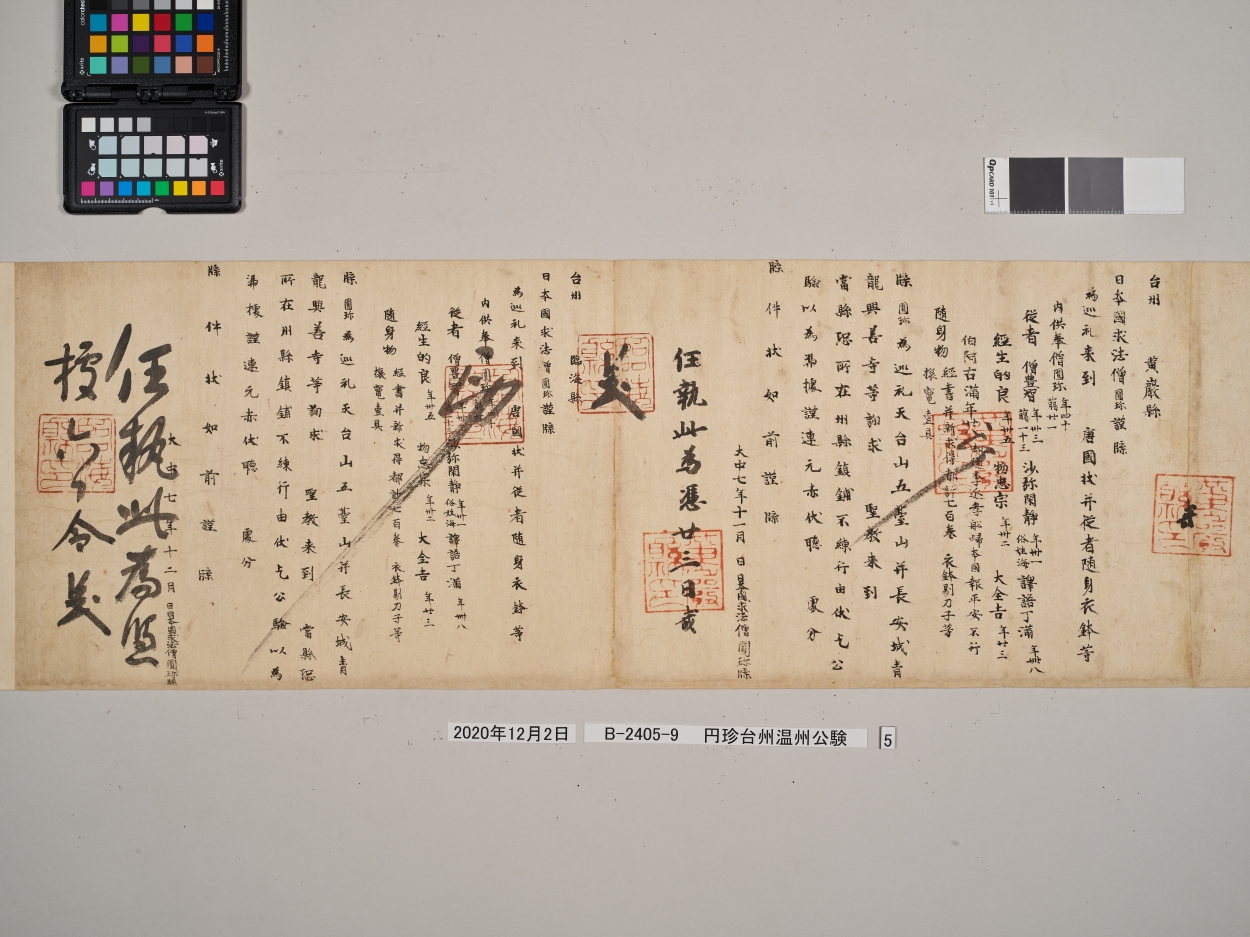 台州 黄巖縣
日本國求法僧圓珍謹牒
為巡礼来到 唐國状并従者随身衣鉢等
内供奉僧圓珍 年四十 﨟廿一
従者 僧豊智 年卅三 﨟十三 沙弥閑静 年卅一 俗姓海 譯語丁滿 年卌八
經生的良 年卅五 物忠宗 年卅二 大全吉 年廿三
随身物 經書并新求得都計七百巻 衣鉢剔刀子等
牒圓珍為巡礼天台山五臺山并長安城青
龍興善寺等詢求 聖教来到
當縣恐所在州縣鎮鋪不練行由伏乞公
驗以為憑據謹連元赤伏聴 處分
牒 件 状 如 前 謹 牒
大中七年十一月 日日本國求法僧圓珍牒
任執此為憑廿三日
台州 臨海縣
日本國求法僧圓珍謹牒
為巡礼来到 唐國状并従者随身衣鉢等
内供奉僧圓珍
従者 僧豊智 沙弥閑静 俗姓海 譯語丁滿 年卌八
經生的良 年卅五 物忠宗 年卅二 大全吉 年廿三
随身物 經書并新求得都計七百巻 衣鉢剔刀子等
牒圓珍為巡礼天台山五臺山并長安城青
龍興善寺等詢求 聖教来到 當縣恐
所在州縣鎮鋪不練行由伏乞公驗以為
憑據謹連元赤伏聴 處分
牒 件 状 如 前 謹 牒
大中七年十二月 日日本國求法僧圓珍牒
任執此為憑
據
2020年12月2日
B-2405-9 円珍台州温州公験
5
QPCARD 101